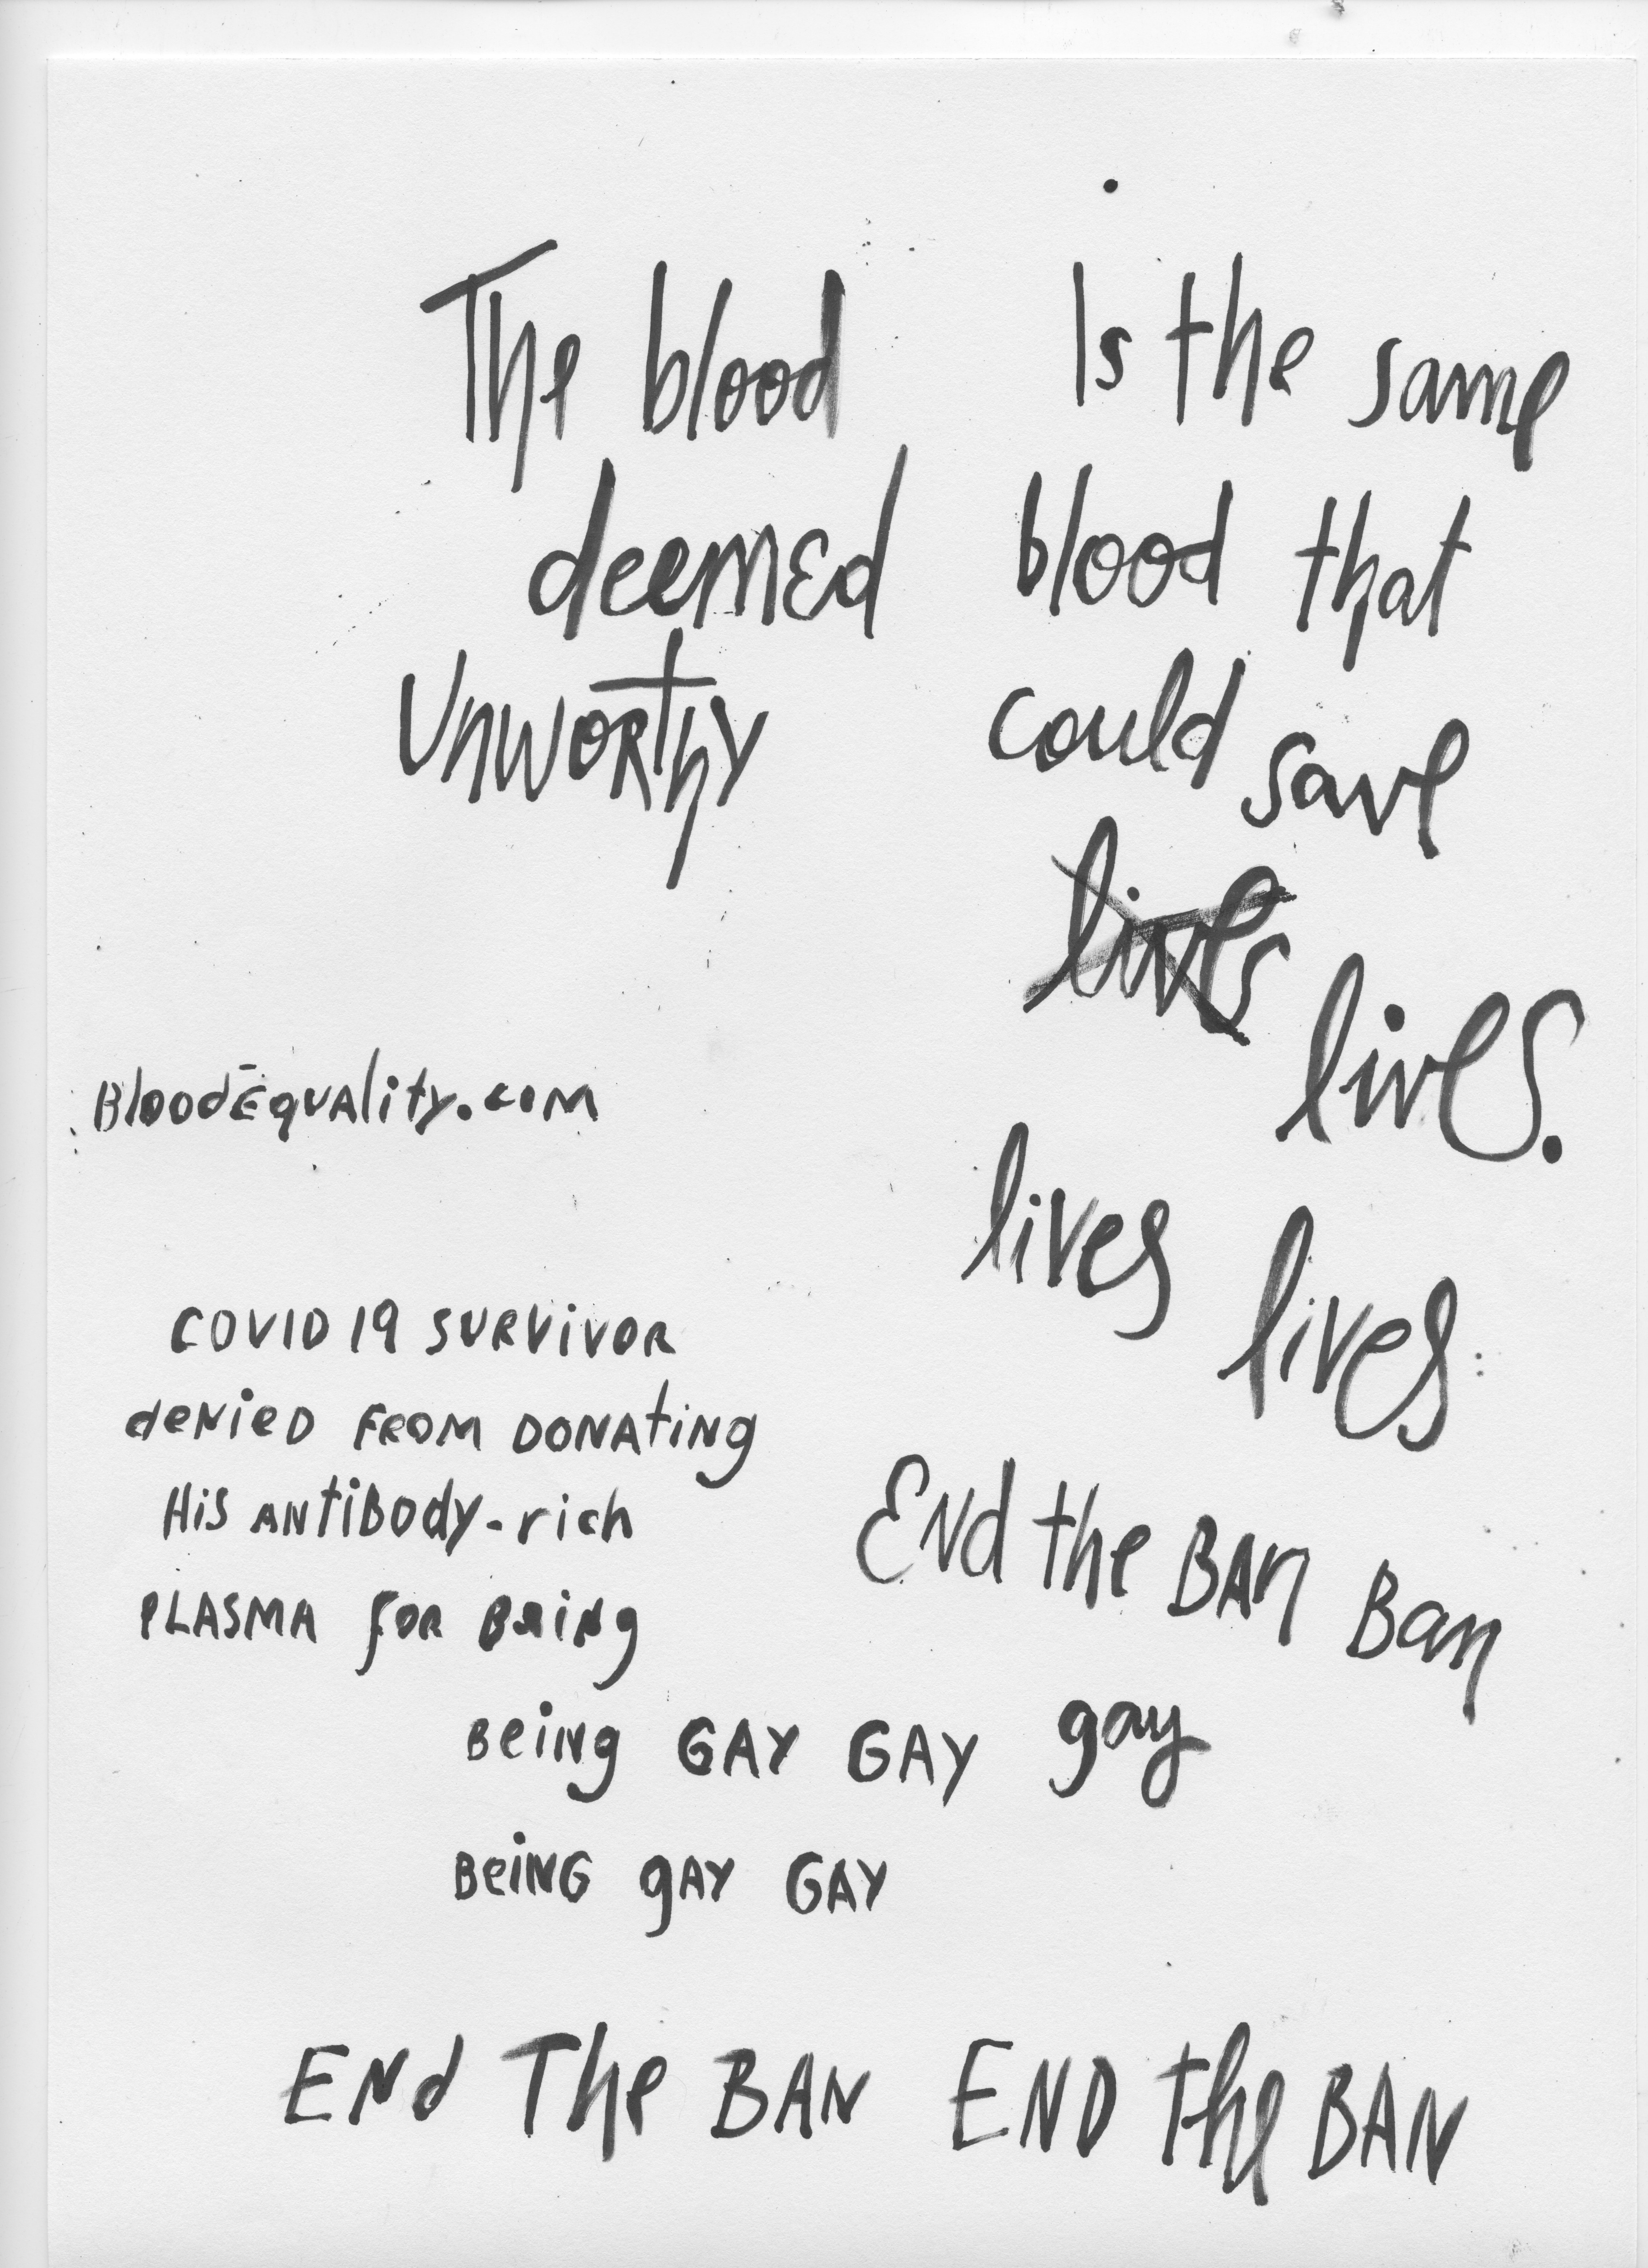 The blood
deemed
Unworthy
Is the same
blood that
could save
lives
lives.
lives
lives
BloodEquality.com
COVID 19 SURVIVOR
deNieD FROM DONAtiNg
HiS ANtiBody-rich
PLASMA foR BeiNg
Being GAY GAY gay
BeiNG gAY GAY
ENd the BAn Ban
ENd The BAN END the BAN